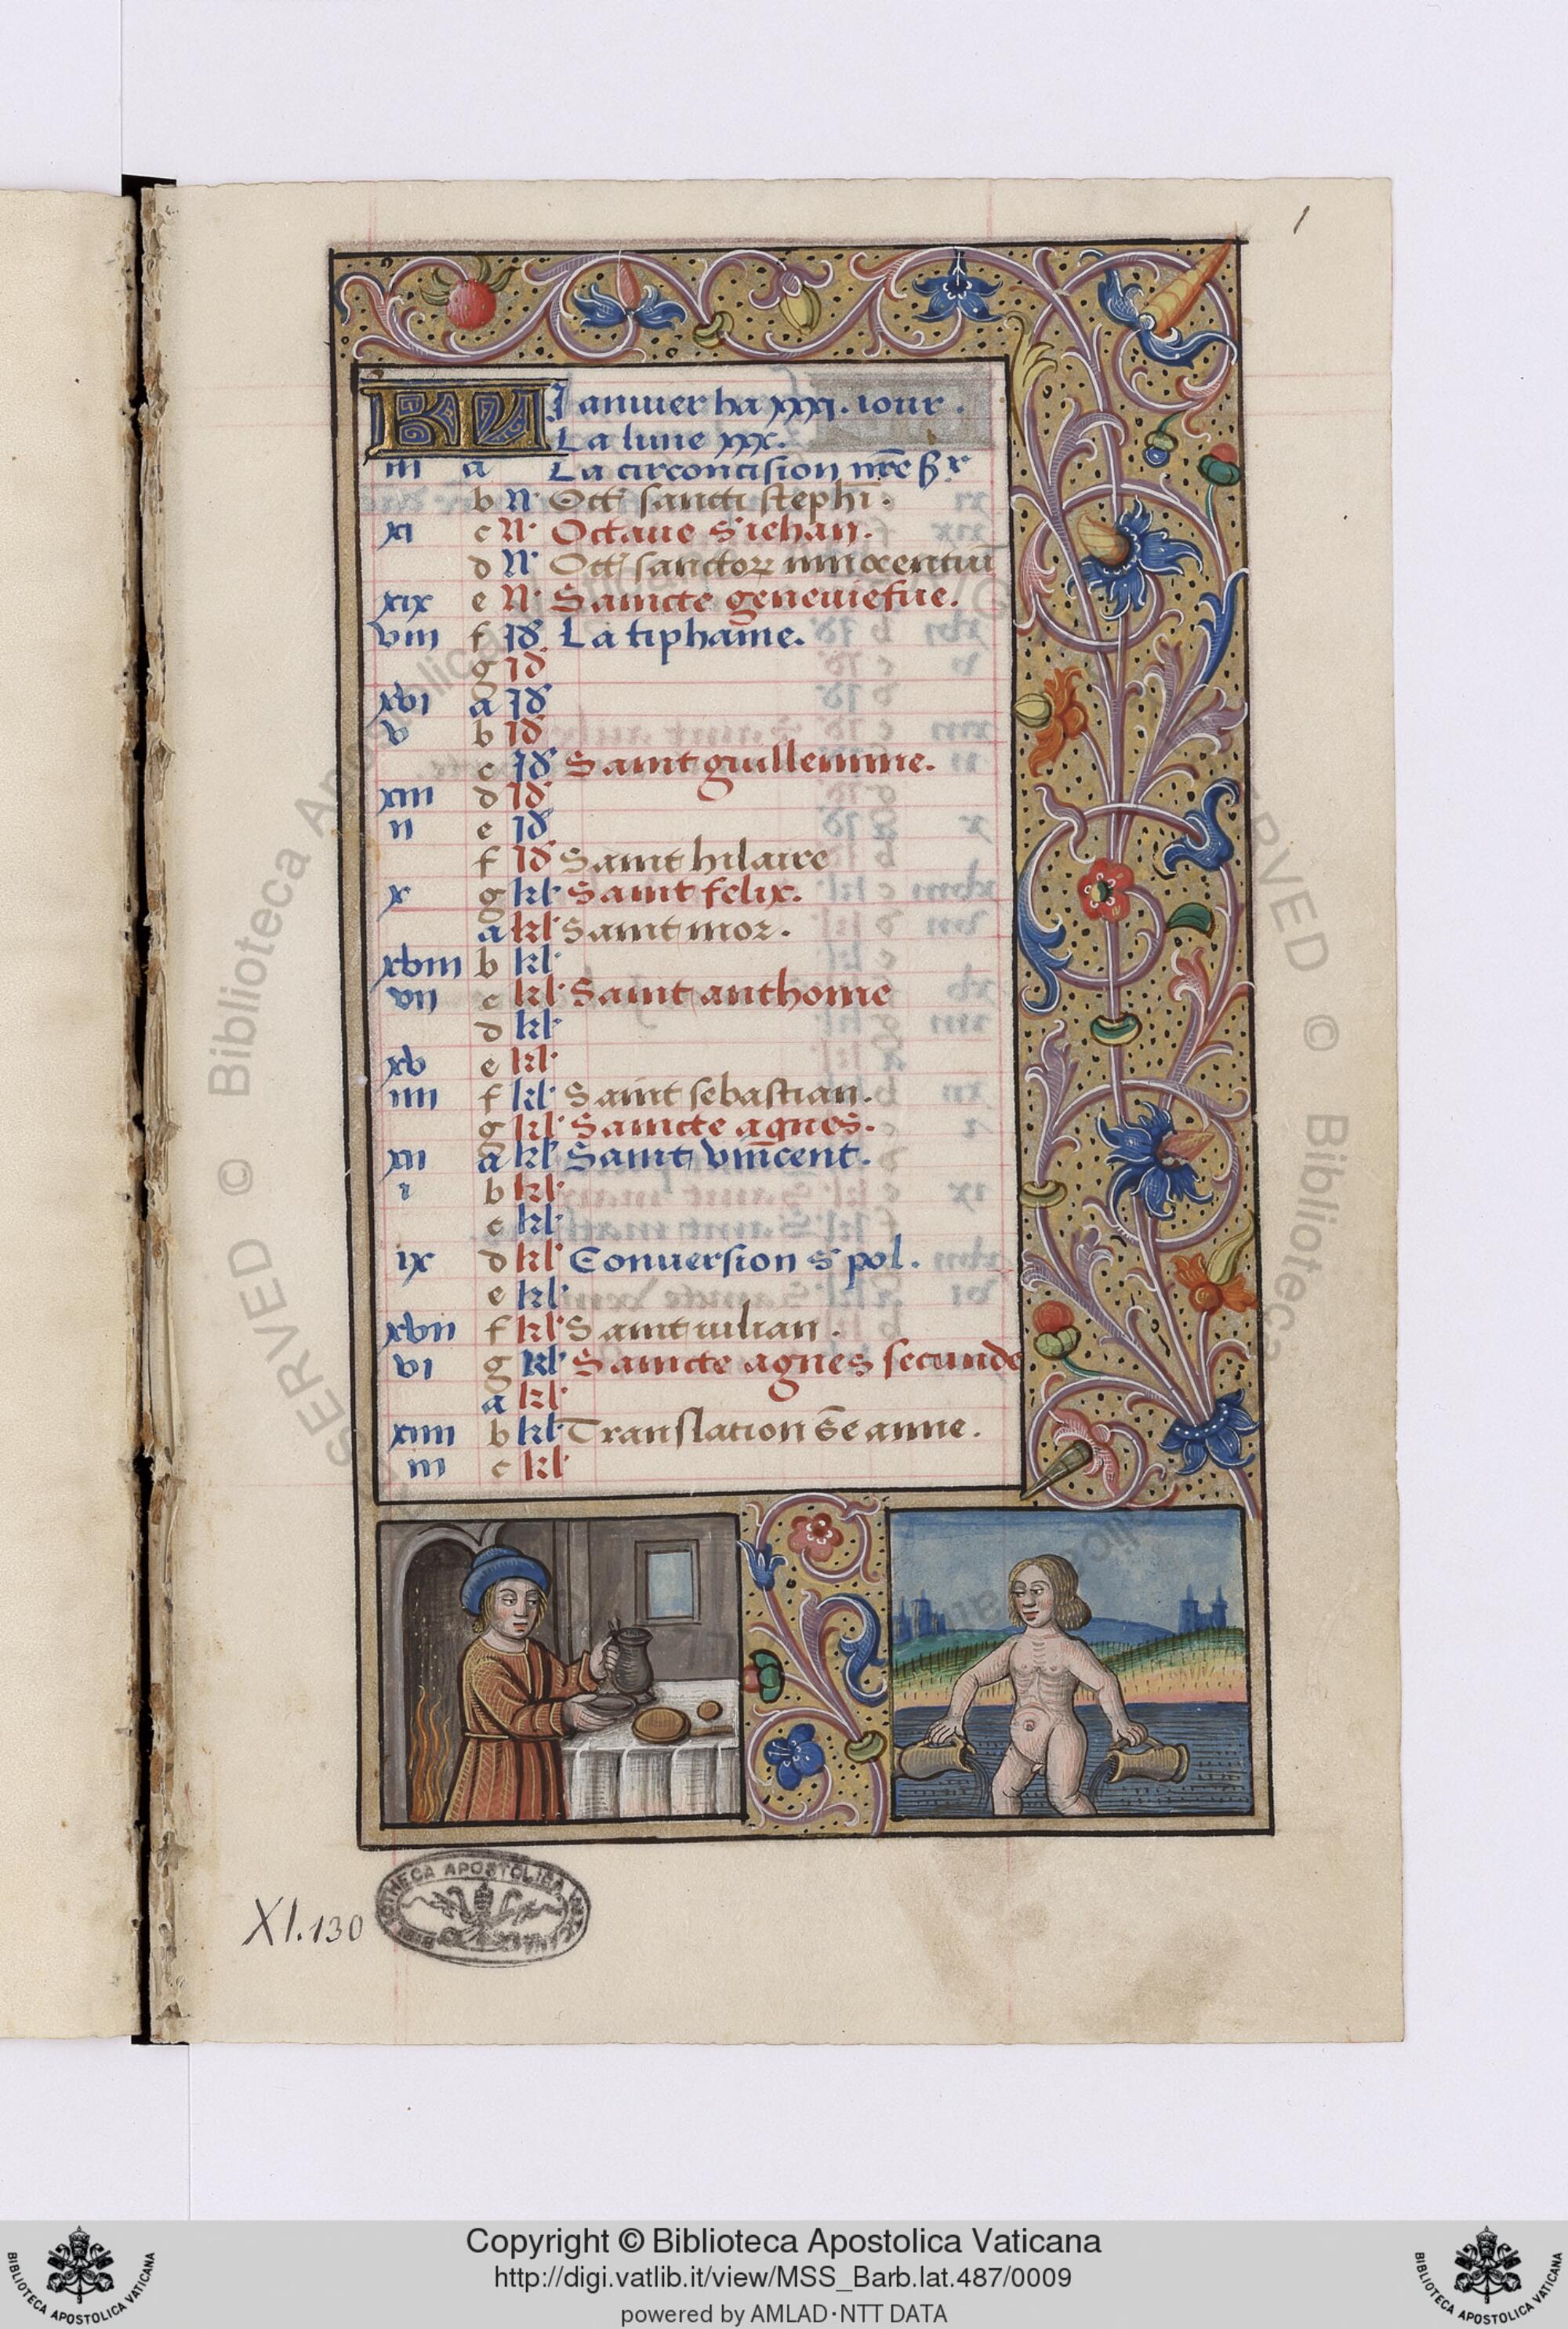 1
KL Januier ha xxxi. iour.
La lune xxx.
iii a La circoncision nr̄e sr̄
b N Oct͛ sancti stephi.
xi c N Octaue s iehan.
d N Oct͛ sanctoꝝ innocentiū
xix e N Saincte geneuiefue.
viii f Id La tiphaīne.
g Id
xvi a Id
v b Id
c Id Saint guillemme.
xiii d Id
ii e Id
f Id Saint hilaire
x g kl Saint felix.
a kl Saint mor.
xviii b kl
vii c kl Saint anthoine
d kl
xv e kl
iiii f kl Saint sebastian.
g kl Saincte agnes.
xii a kl Saint vin̄cent.
i b kl
c kl
ix d kl Conuersion s pol.
e kl
xvii f kl Saint iulian.
vi g kl Saincte agnes secunde
a kl
xiiii b kl Translation s̄e anne.
iii c kl
XI.130
BIBLIOTHECA APOSTOLICA VATICANA
Copyright © Biblioteca Apostolica Vaticana
http://digi.vatlib.it/view/MSS_Barb.lat.487/0009
powered by AMLAD·NTT DATA
BIBLIOTECA APOSTOLICA VATICANA
BIBLIOTECA APOSTOLICA VATICANA